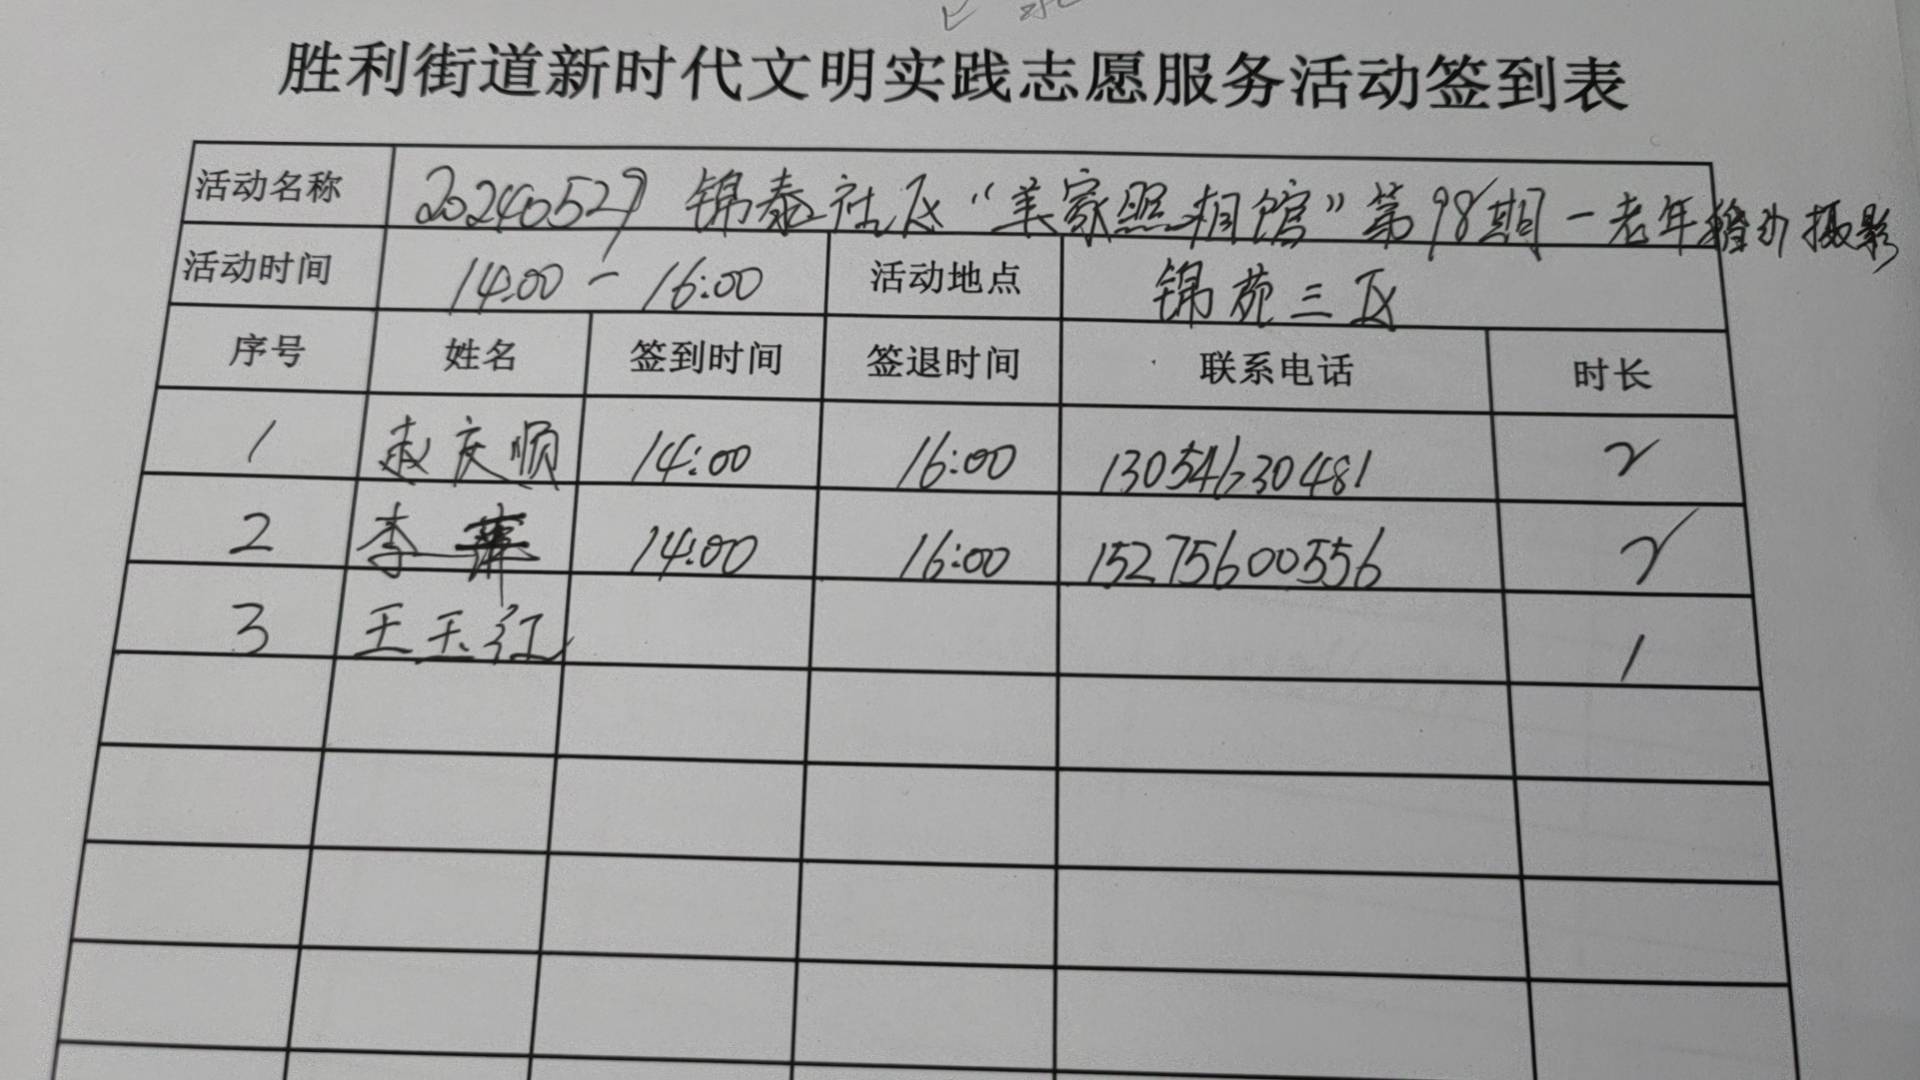 胜利街道新时代文明实践志愿服务活动签到表
活动名称 20240527 锦泰社区“美家照相馆”第98期-老年 摄影
活动时间 14:00-16:00 活动地点 锦苑三区
序号 姓名 签到时间 签退时间 联系电话 时长
1 赵庆顺 14:00 16:00 13054630481 2
2 李萍 14:00 16:00 15275600556 2
3 王玉红 1